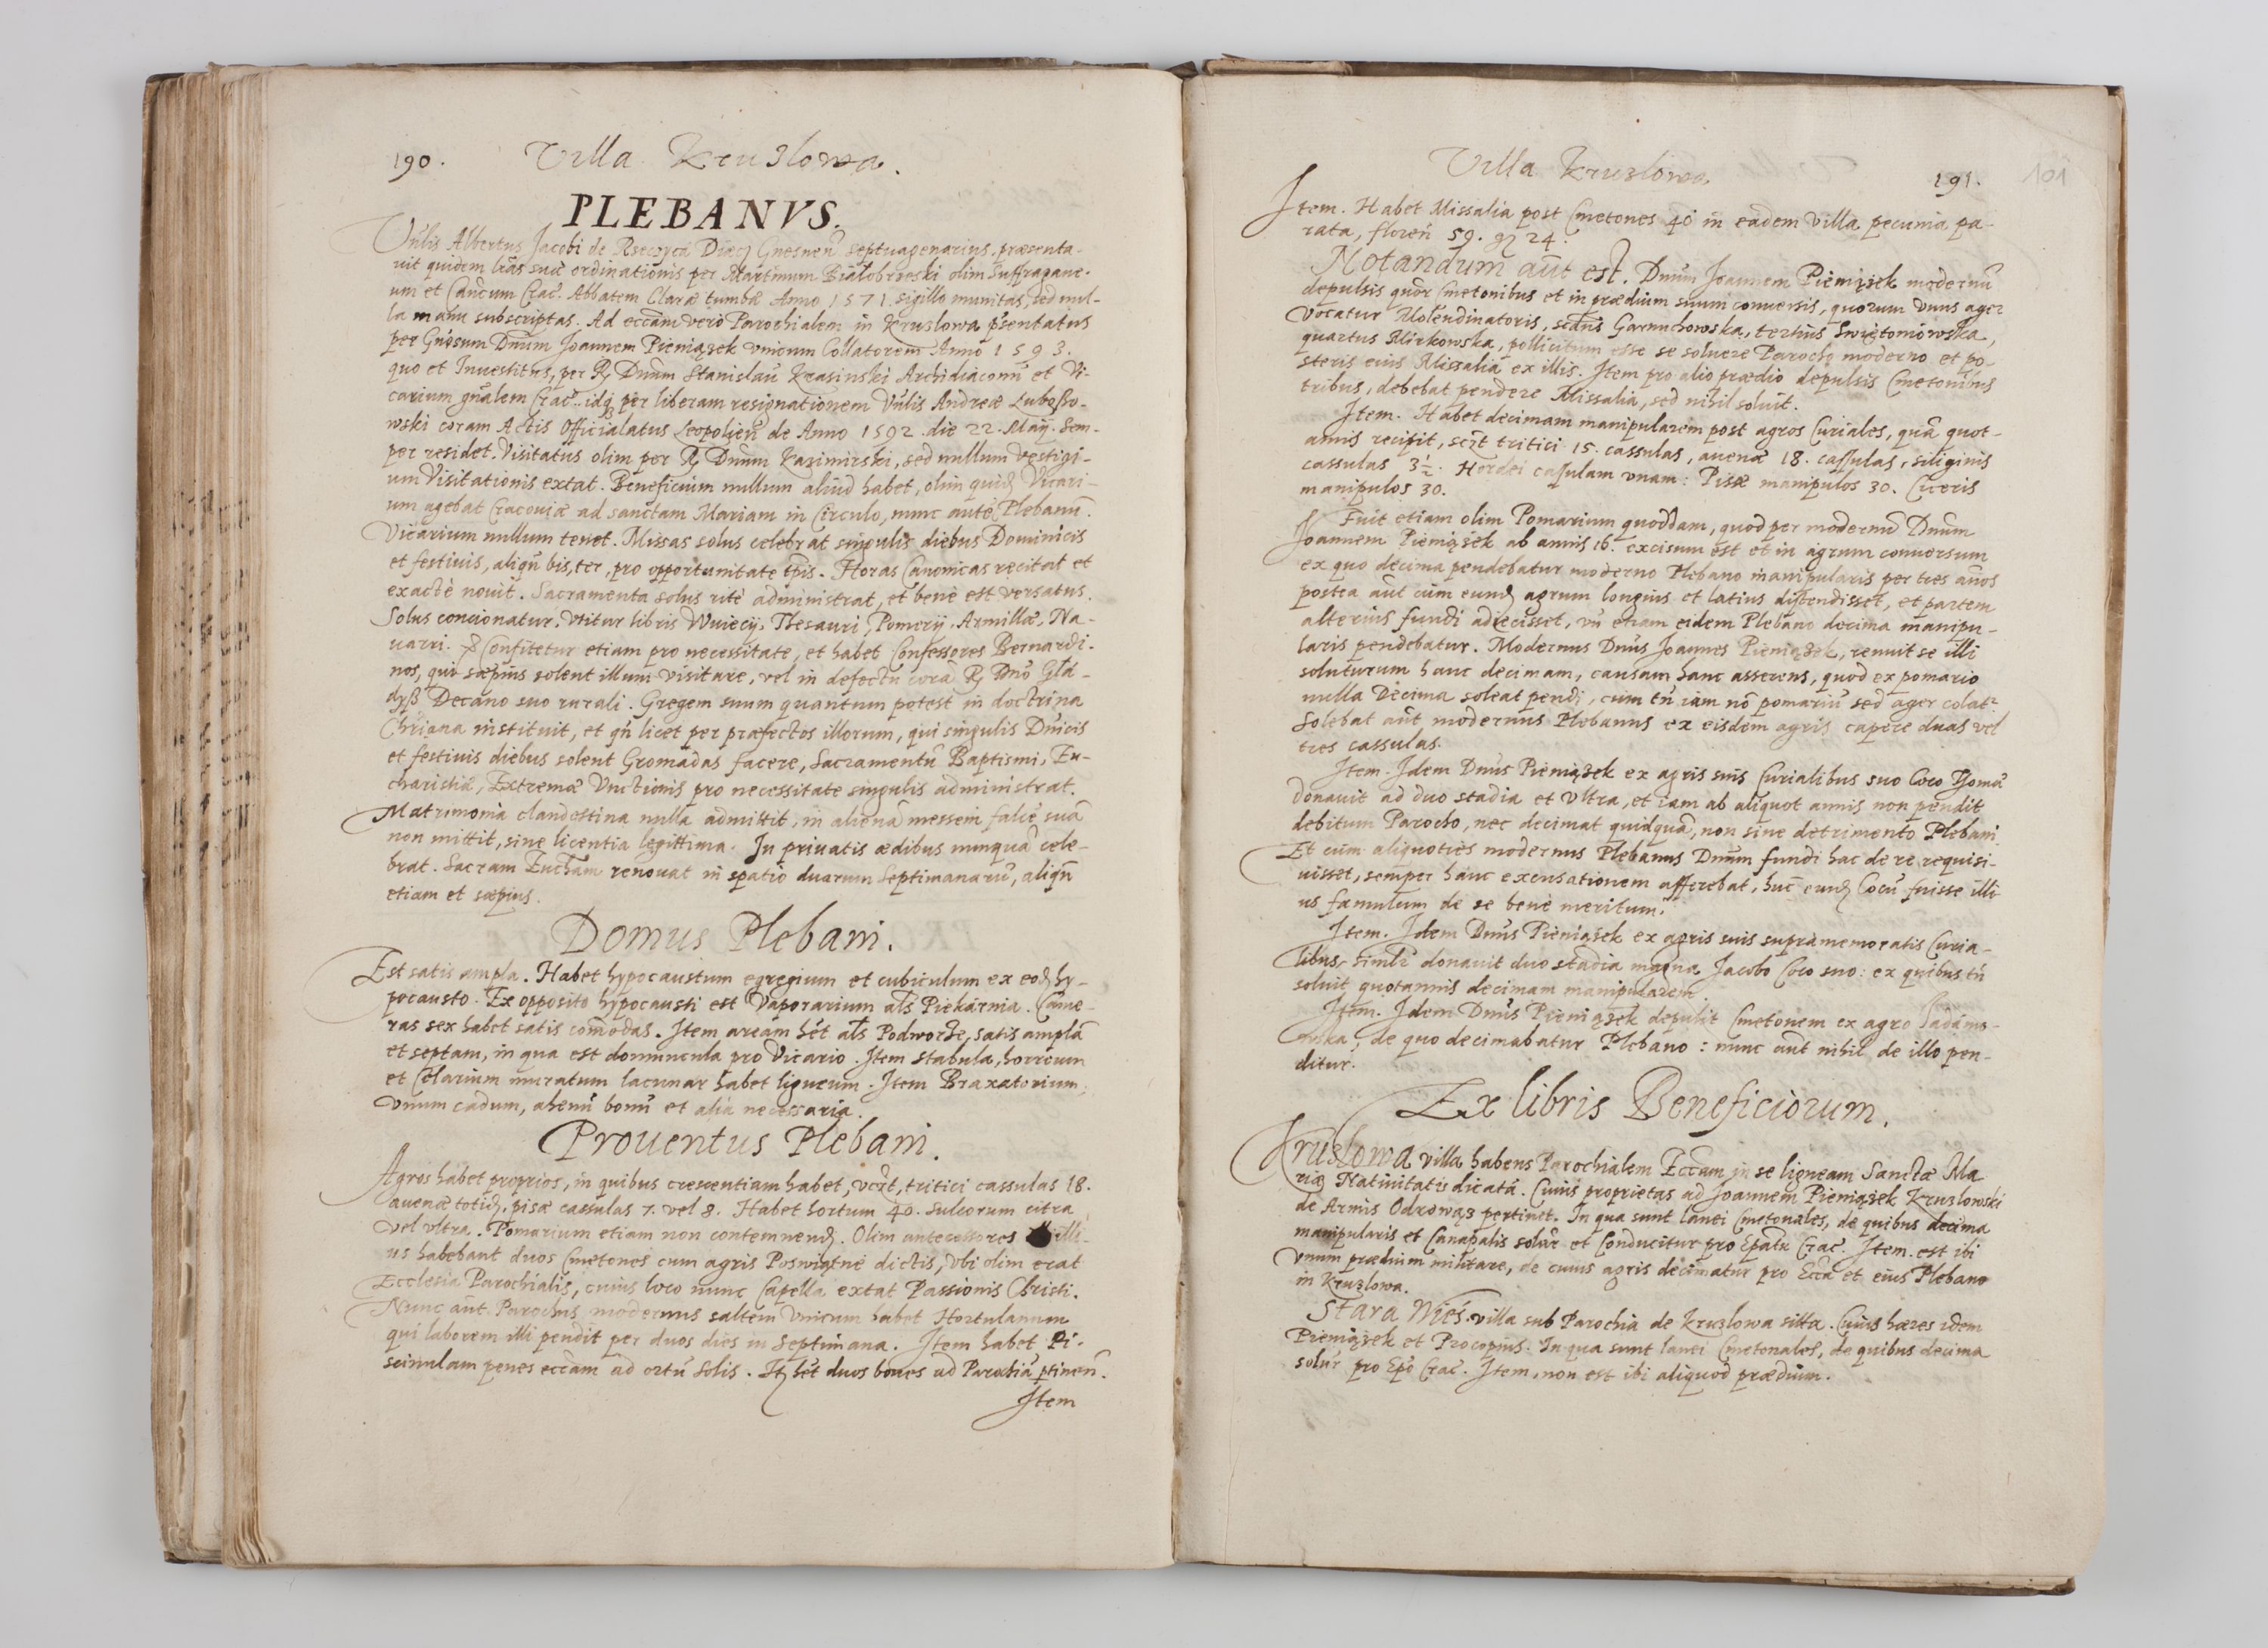 190. Villa Kruzlowa.
PLEBANVS.
Vnlis Albertus Jacobi de Rzeczyca Diaec Gnesneñ septuagenarius, præsenta-
uit quidem lras suæ ordinationis per Martinum Bialobrzeski olim Suffragane-
um et Cancum Crac. Abbatem Claræ tumbæ Anno 1571. sigillo munitas, sed nul-
la manu subscriptas. Ad eccam vero Parochialem in Kruzlowa psentatus
per Gnosum Dnum Joannem Pieniązek vnicum Collatorem Anno 1593.
quo et Inuestitus, per R Dnum Stanislau Krasinski Archidiaconu et Vi-
carium gnalem Crac. idq per liberam resignationem Vnlis Andreæ Lubosso-
wski coram Actis Officialatus Leopolien de Anno 1592. die 22. Maij. Sem-
per residet. Visitatus olim per R Dnum Kazimirski, sed nullum vestigi-
um Visitationis extat. Beneficium nullum aliud habet, olim quid Vicari-
um agebat Cracouiæ ad sanctam Mariam in Circulo, nunc aute Plebanu.
Vicarium nullum tenet. Missas solus celebrat singulis diebus Dominicis
et festiuis, aliqn bis, ter, pro opportunitate tpis. Horas Canonicas recitat et
exactè nouit. Sacramenta solus ritè administrat, et benè est versatus.
Solus concionatur. Vtitur libris Wuiecij, Thesauri, Pomerij, Armillæ, Na-
uarri. Confitetur etiam pro necessitate, et habet Confessores Bernardi-
nos, qui sæpius solent illum visitare, vel in defectu cora R Dno Gla-
dysz Decano suo rurali. Gregem suum quantum potest in doctrina
Chriana instituit, et qn licet per præfectos illorum, qui singulis Dnicis
et festiuis diebus solent Gromadas facere, Sacramentu Baptismi, Eu-
charistiæ, Extremæ Vnctionis pro necessitate singulis administrat.
Matrimonia clandestina nulla admittit, in aliena messem falce sua
non mittit, sine licentia legittima. In priuatis ædibus nunqua cele-
brat. Sacram Eucham renouat in spatio duarum Septimanaru, aliqn
etiam et sæpius.
Domus Plebani.
Est satis ampla. Habet hypocaustum egregium et cubiculum ex eod hy-
pocausto. Ex opposito hypocausti est Vaporarium als Piekarnia. Came-
ras sex habet satis comodas. Item aream het als Podworze, satis ampla
et septam, in qua est domuncula pro Vicario. Item stabula, horreum
et Celarium muratum lacunar habet ligneum. Item Braxatorium,
vnum cadum, ahenu bonu et alia necessaria.
Prouentus Plebani.
Agros habet proprios, in quibus crescentiam habet, vczt, tritici cassulas 18.
auenæ totid, pisæ cassulas 7. vel 8. Habet hortum 40. sulcorum citra
vel vltra. Pomarium etiam non contemnend. Olim antecessores illi-
us habebant duos Cmetones cum agris Poswiątne dictis, vbi olim erat
Ecclesia Parochialis, cuius loco nunc Capella extat Passionis Christi.
Nunc aut Parochus modernus saltem vnicum habet Hortulanum
qui laborem illi pendit per duos dies in Septimana. Item habet Pi-
scinulam penes eccam ad ortu Solis. It het duos boues ad Parochia ptinen.
Item
Villa Kruzlowa 191. 101
Item. Habet Missalia post Cmetones 40 in eadem villa pecunia pa-
rata, floren 59. gr 24.
Notandum aut est. Dnum Joannem Pieniązek modernu
depulsis quor Cmetonibus et in prædium suum conuersis, quorum vnus ager
vocatur Molendinatoris, scdus Garnuchowska, tertius Swiętomowska,
quartus Mirkowska, pollicitum esse se soluere Parocho moderno et po-
steris eius Missalia ex illis. Item pro alio prædio depulsis Cmetonibus
tribus, debebat pendere Missalia, sed nihil soluit.
Item. Habet decimam manipularem post agros Curiales, qua quot-
annis recipit, sczt tritici 15. cassulas, auenæ 18. cassulas, siliginis
cassulas 3½. Hordei cassulam vnam: Pisæ manipulos 30. Ciceris
manipulos 30.
Fuit etiam olim Pomarium quoddam, quod per modernu Dnum
Joannem Pieniązek ab annis 16. excisum est et in agrum conuersum
ex quo decima pendebatur moderno Plebano manipularis per tres annos
postea aut cum eund agrum longius et latius distendisset, et partem
alterius fundi adiecisset, vn etiam eidem Plebano decima manipu-
laris pendebatur. Modernus Dnus Joannes Pieniązek, renuit se illi
soluturum hanc decimam, causam hanc asserens, quod ex pomario
nulla Decima soleat pendi, cum tn iam no pomariu sed ager colat
Solebat aut modernus Plebanus ex eisdem agris capere duas vel
tres cassulas.
Item. Idem Dnus Pieniązek ex agris suis Curialibus suo Coco Thoma
donauit ad duo stadia et vltra, et iam ab aliquot annis non pendit
debitum Parocho, nec decimat quidqua, non sine detrimento Plebani.
Et cum aliquoties modernus Plebanus Dnum fundi hac de re requisi-
uisset, semper hanc excusationem afferebat, hunc eund Cocu fuisse illi-
us famulum de se benè meritum.
Item. Idem Dnus Pieniązek ex agris suis supramemoratis Curia-
libus simlr donauit duo stadia magna Jacobo Coco suo: ex quibus tn
soluit quotannis decimam manipularem.
Item. Idem Dnus Pieniązek depulit Cmetonem ex agro Sadamo-
wska, de quo decimabatur Plebano: nunc aut nihil de illo pen-
ditur.
Ex libris Beneficiorum.
Kruzlowa villa habens Parochialem Eccam in se ligneam Sanctæ Ma
riæ Natiuitatis dicata. Cuius proprietas ad Joannem Pieniązek Kruzlowski
de Armis Odrowąz pertinet. In qua sunt lanei Cmetonales, de quibus decima
manipularis et Canapalis soluir et Conducitur pro Epatu Crac. Item est ibi
vnum prædium militare, de cuius agris decimatur pro Ecca et eius Plebano
in Kruzlowa.
Stara Wieś villa sub Parochia de Kruzlowa sitta. Cuius hæres idem
Pieniązek et Procopius. In qua sunt lanei Cmetonales, de quibus decima
soluir pro Epo Crac. Item, non est ibi aliquod prædium.